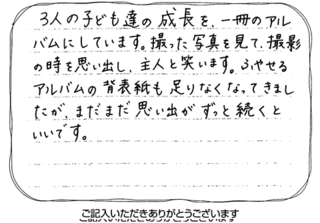 3人の子ども達の成長を、一冊のアル
バムにしています。撮った写真を見て、撮影
の時を思い出し、主人と笑います。ふやせる
アルバムの背表紙も足りなくなってきまし
たが、まだまだ思い出がずっと続くと
いいです。
ご記入いただきありがとうございます